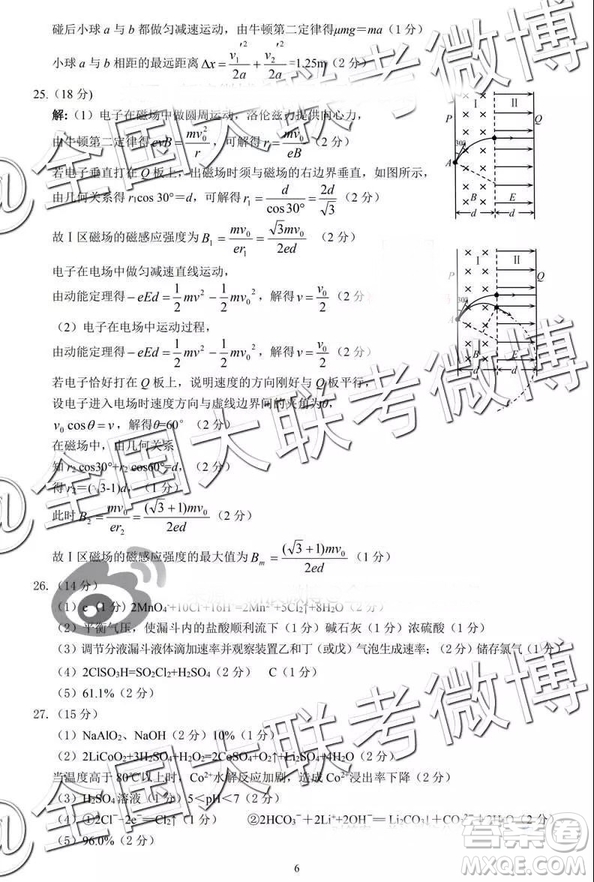 碰后小球 a 与 b 都做匀减速运动，由牛顿第二定律得μmg=ma（1 分）
小球 a 与 b 相距的最远距离Δx=v₁′²/2a+v₂′²/2a=1.25m（2 分）
25.（18 分）
解:（1）电子在磁场中做圆周运动，洛伦兹力提供向心力，
由牛顿第二定律得evB=mv₀²/r，可解得r₁=mv₀/eB（2 分）
若电子垂直打在 Q 板上，出磁场时须与磁场的右边界垂直，如图所示，
由几何关系得 r₁cos 30°=d，可解得r₁=d/cos30°=2d/√3（2 分）
故Ⅰ区磁场的磁感应强度为B₁=mv₀/er₁=√3mv₀/2ed（2 分）
电子在电场中做匀减速直线运动，
由动能定理得−eEd=1/2mv²−1/2mv₀²，解得v=v₀/2（2 分
（2）电子在电场中运动过程，
由动能定理得−eEd=1/2mv²−1/2mv₀²，解得v=v₀/2（2 分）
若电子恰好打在 Q 板上，说明速度的方向刚好与 Q 板平行，
设电子进入电场时速度方向与虚线边界间的夹角为θ，
v₀cosθ=v，解得θ=60°（2 分）
在磁场中，由几何关系
知 r₂cos30°+r₂cos60°=d，（2 分）
得 r₂=(√3-1)d，（1 分）
此时B₂=mv₀/er₂=(√3+1)mv₀/2ed（2 分）
故Ⅰ区磁场的磁感应强度的最大值为Bm=(√3+1)mv₀/2ed（1 分）
26.（14 分）
（1）c（1 分）2MnO₄⁻+10Cl⁻+16H⁺=2Mn²⁺+5Cl₂↑+8H₂O（2 分）
（2）平衡气压，使漏斗内的盐酸顺利流下（1 分）碱石灰（1 分）浓硫酸（1 分）
（3）调节分液漏斗液体滴加速率并观察装置乙和丁（或戊）气泡生成速率；（2 分）储存氯气（1 分）
（4）2ClSO₃H=SO₂Cl₂+H₂SO₄（2 分） C（1 分）
（5）61.1%（2 分）
27.（15 分）
（1）NaAlO₂、NaOH（2 分）10%（1 分）
（2）2LiCoO₂+3H₂SO₄+H₂O₂=2CoSO₄+O₂↑+Li₂SO₄+4H₂O（2 分）
当温度高于 80℃以上时，Co²⁺水解反应加剧，造成 Co²⁺浸出率下降（2 分）
（3）H₂SO₄溶液（1 分）5＜pH＜7（2 分）
（4）①2Cl⁻−2e⁻=Cl₂↑（1 分） ②2HCO₃⁻+2Li⁺+2OH⁻=Li₂CO₃↓+CO₃²⁻+2H₂O（2 分）
（5）96.0%（2 分）
6
Ⅰ Ⅱ
P Q
30°
A
B E
d d
Ⅰ Ⅱ
P Q
30°
A
B E
d d
@全国大联考微博
@全国大联考微博
@全国大联考微博
答案圈
MXQE.COM